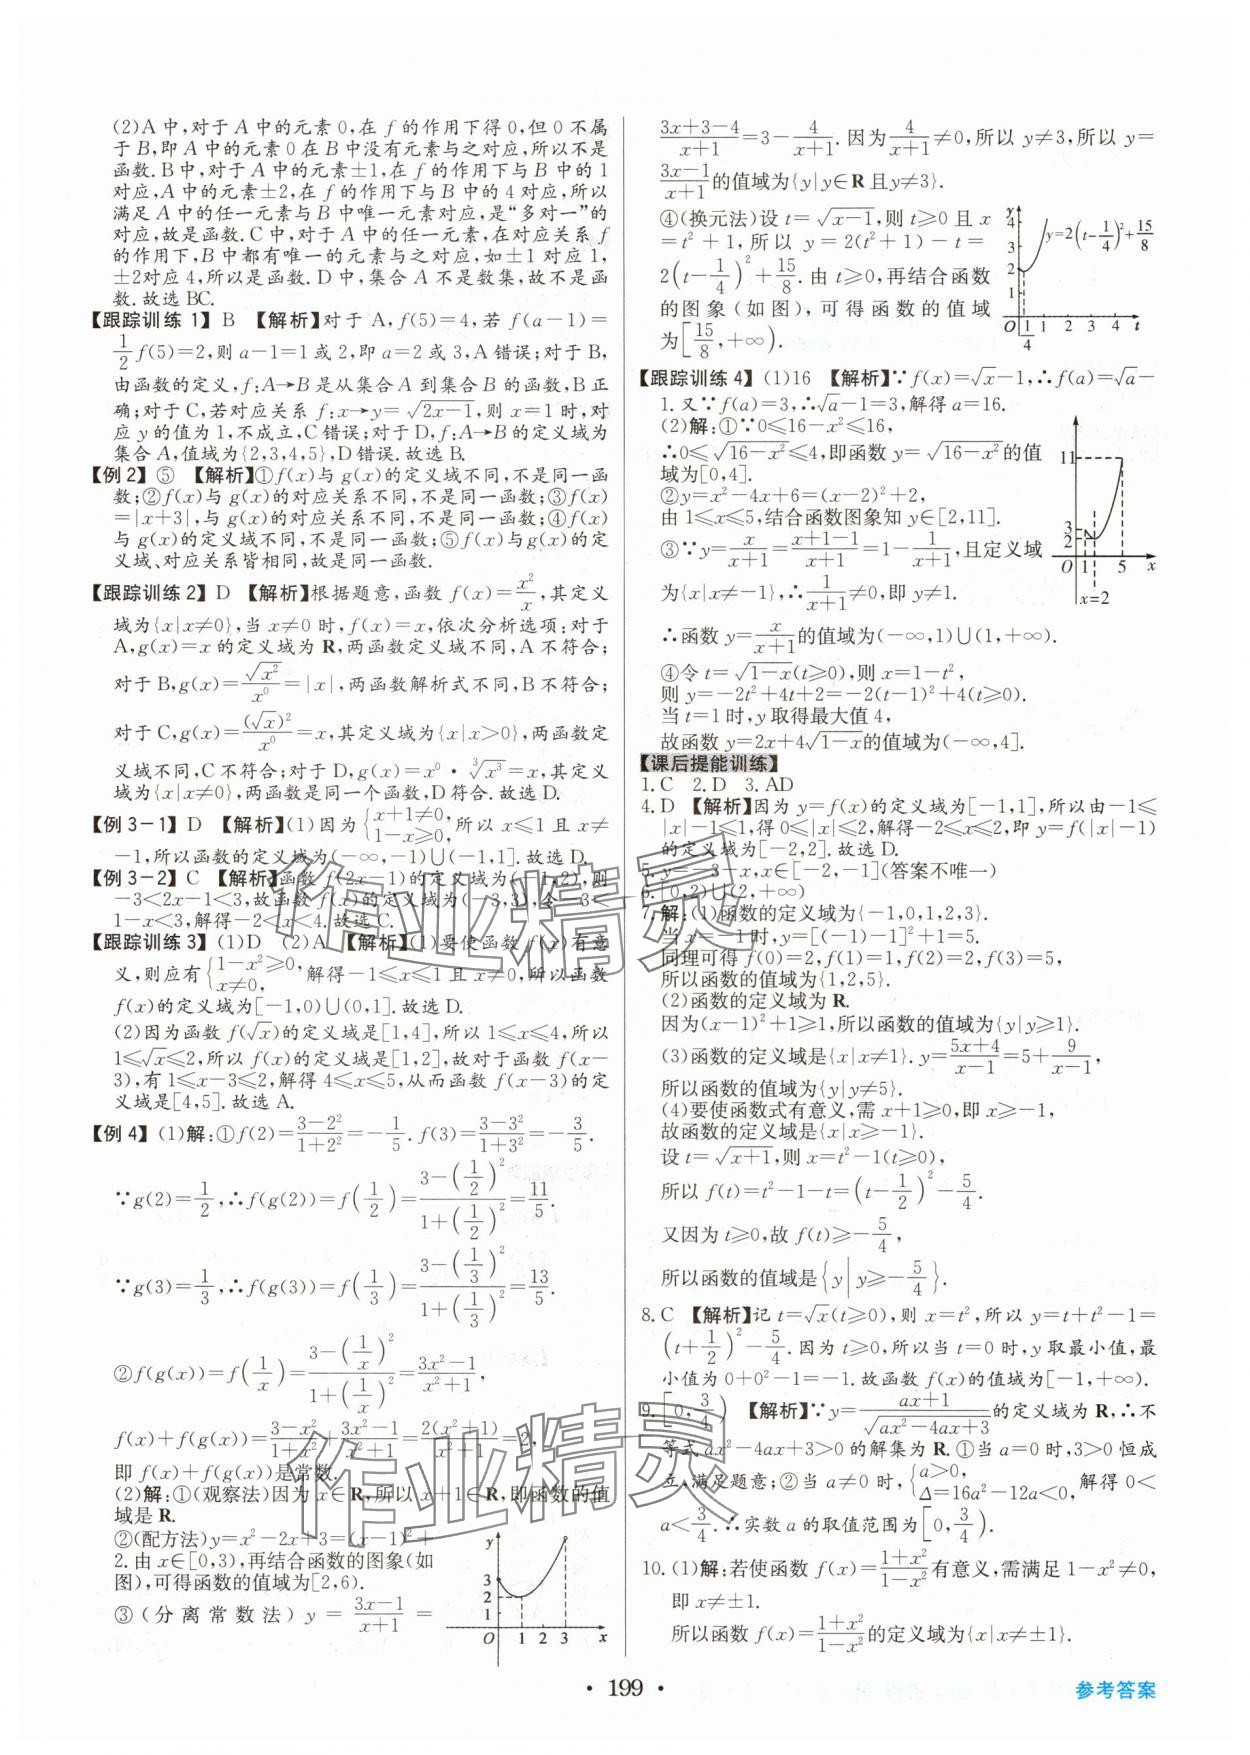 (2)A中,对于A中的元素0,在f的作用下得0,但0不属
于B,即A中的元素0在B中没有元素与之对应,所以不是
函数.B中,对于A中的元素±1,在f的作用下与B中的1
对应,A中的元素±2,在f的作用下与B中的4对应,所以
满足A中的任一元素与B中唯一元素对应,是“多对一”的
对应,故是函数.C中,对于A中的元素,在对应关系f
的作用下,B中都有唯一的元素与之对应,如±1对应1,
±2对应4,所以是函数.D中,集合A不是数集,故不是函
数.故选BC.
【跟踪训练1】 B 【解析】对于A,f(5)=4,若f(a-1)=
1/2 f(5)=2,则a-1=1或2,即a=2或3,A错误;对于B,
由函数的定义,f:A→B是从集合A到集合B的函数,B正
确;对于C,若对应关系f:x→y=√(2x-1),则x=1时,对
应y的值为1,不成立,C错误;对于D,f:A→B的定义域为
集合A,值域为{2,3,4,5},D错误.故选B.
【例2】 ⑤ 【解析】①f(x)与g(x)的定义域不同,不是同一函
数;②f(x)与g(x)的对应关系不同,不是同一函数;③f(x)
=|x+3|,与g(x)的对应关系不同,不是同一函数;④f(x)
与g(x)的定义域不同,不是同一函数;⑤f(x)与g(x)的定
义域、对应关系皆相同,故是同一函数.
【跟踪训练2】 D 【解析】根据题意,函数f(x)=x²/x,其定义
域为{x|x≠0},当x≠0时,f(x)=x,依次分析选项:对于
A,g(x)=x的定义域为R,两函数定义域不同,A不符合;
对于B,g(x)=√(x²)/x⁰=|x|,两函数解析式不同,B不符合;
对于C,g(x)=(√x)²/x⁰=x,其定义域为{x|x>0},两函数定
义域不同,C不符合;对于D,g(x)=x⁰·∛(x³)=x,其定义
域为{x|x≠0},两函数是同一个函数,D符合.故选D.
【例3-1】 D 【解析】(1)因为{x+1≠0, 1-x≥0,所以x≤1且x≠
-1,所以函数的定义域为(-∞,-1)∪(-1,1].故选D.
【例3-2】 C 【解析】函数f(2x-1)的定义域为(-1,2),则
-3<2x-1<3,故函数f(x)的定义域为(-3,3),令-3<
1-x<3,解得-2<x<4.故选C.
【跟踪训练3】 (1)D (2)A 【解析】(1)要使函数f(x)有意
义,则应有{1-x²≥0, x≠0,解得-1≤x≤1且x≠0,所以函数
f(x)的定义域为[-1,0)∪(0,1].故选D.
(2)因为函数f(√x)的定义域是[1,4],所以1≤x≤4,所以
1≤√x≤2,所以f(x)的定义域是[1,2],故对于函数f(x-
3),有1≤x-3≤2,解得4≤x≤5,从而函数f(x-3)的定
义域是[4,5].故选A.
【例4】 (1)解:①f(2)=(3-2²)/(1+2²)=-1/5.f(3)=(3-3²)/(1+3²)=-3/5.
∵g(2)=1/2,∴f(g(2))=f(1/2)=(3-(1/2)²)/(1+(1/2)²)=11/5.
∵g(3)=1/3,∴f(g(3))=f(1/3)=(3-(1/3)²)/(1+(1/3)²)=13/5.
②f(g(x))=f(1/x)=(3-(1/x)²)/(1+(1/x)²)=(3x²-1)/(x²+1),
f(x)+f(g(x))=(3-x²)/(1+x²)+(3x²-1)/(x²+1)=2(x²+1)/(x²+1)=2,
即f(x)+f(g(x))是常数.
(2)解:①(观察法)因为x∈R,所以x+1∈R,即函数的值
域是R.
②(配方法)y=x²-2x+3=(x-1)²+
2.由x∈[0,3),再结合函数的图象(如
图),可得函数的值域为[2,6).
③(分离常数法)y=(3x-1)/(x+1)=
y
3
2
1
O 1 2 3 x
(3x+3-4)/(x+1)=3-4/(x+1).因为4/(x+1)≠0,所以y≠3,所以y=
(3x-1)/(x+1)的值域为{y|y∈R且y≠3}.
④(换元法)设t=√(x-1),则t≥0且x
=t²+1,所以y=2(t²+1)-t=
2(t-1/4)²+15/8.由t≥0,再结合函数
的图象(如图),可得函数的值域
为[15/8,+∞).
y
4
3
2
1
y=2(t-1/4)²+15/8
O 1/4 1 2 3 4 t
【跟踪训练4】 (1)16 【解析】∵f(x)=√x-1,∴f(a)=√a-
1.又∵f(a)=3,∴√a-1=3,解得a=16.
(2)解:①∵0≤16-x²≤16,
∴0≤√(16-x²)≤4,即函数y=√(16-x²)的值
域为[0,4].
②y=x²-4x+6=(x-2)²+2,
由1≤x≤5,结合函数图象知y∈[2,11].
③∵y=x/(x+1)=(x+1-1)/(x+1)=1-1/(x+1),且定义域
为{x|x≠-1},∴1/(x+1)≠0,即y≠1.
11
3
2
O 1 5 x
x=2
∴函数y=x/(x+1)的值域为(-∞,1)∪(1,+∞).
④令t=√(1-x)(t≥0),则x=1-t²,
则y=-2t²+4t+2=-2(t-1)²+4(t≥0).
当t=1时,y取得最大值4,
故函数y=2x+4√(1-x)的值域为(-∞,4].
【课后提能训练】
1.C 2.D 3.AD
4.D 【解析】因为y=f(x)的定义域为[-1,1],所以由-1≤
|x|-1≤1,得0≤|x|≤2,解得-2≤x≤2,即y=f(|x|-1)
的定义域为[-2,2].故选D.
5.y=-3-x,x∈[-2,-1](答案不唯一)
6.[0,2)∪(2,+∞)
7.解:(1)函数的定义域为{-1,0,1,2,3}.
当x=-1时,y=[(-1)-1]²+1=5.
同理可得f(0)=2,f(1)=1,f(2)=2,f(3)=5,
所以函数的值域为{1,2,5}.
(2)函数的定义域为R.
因为(x-1)²+1≥1,所以函数的值域为{y|y≥1}.
(3)函数的定义域是{x|x≠1}.y=(5x+4)/(x-1)=5+9/(x-1),
所以函数的值域为{y|y≠5}.
(4)要使函数式有意义,需x+1≥0,即x≥-1,
故函数的定义域是{x|x≥-1}.
设t=√(x+1),则x=t²-1(t≥0),
所以f(t)=t²-1-t=(t-1/2)²-5/4.
又因为t≥0,故f(t)≥-5/4,
所以函数的值域是{y|y≥-5/4}.
8.C 【解析】记t=√x(t≥0),则x=t²,所以y=t+t²-1=
(t+1/2)²-5/4.因为t≥0,所以当t=0时,y取最小值,最
小值为0+0²-1=-1.故函数f(x)的值域为[-1,+∞).
9.[0,3/4) 【解析】∵y=(ax+1)/√(ax²-4ax+3)的定义域为R,∴不
等式ax²-4ax+3>0的解集为R.①当a=0时,3>0恒成
立,满足题意;②当a≠0时,{a>0, Δ=16a²-12a<0,解得0<
a<3/4.∴实数a的取值范围为[0,3/4).
10.(1)解:若使函数f(x)=(1+x²)/(1-x²)有意义,需满足1-x²≠0,
即x≠±1.
所以函数f(x)=(1+x²)/(1-x²)的定义域为{x|x≠±1}.
作业精灵
作业精灵
· 199 ·
参考答案